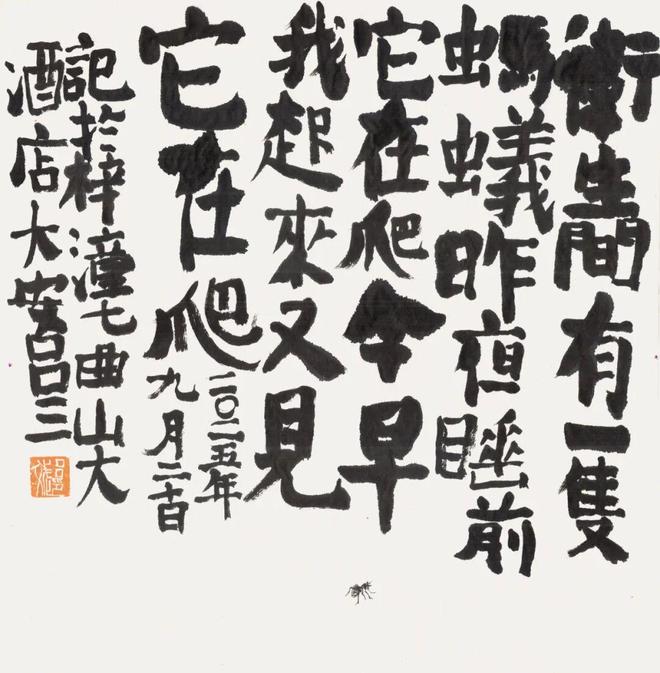 衛生間有一隻
螞蟻昨夜睡前
它在爬今早
我起來又見
它在爬
二〇二五年
九月二十日
記於梓潼七曲山大
酒店大安呂三